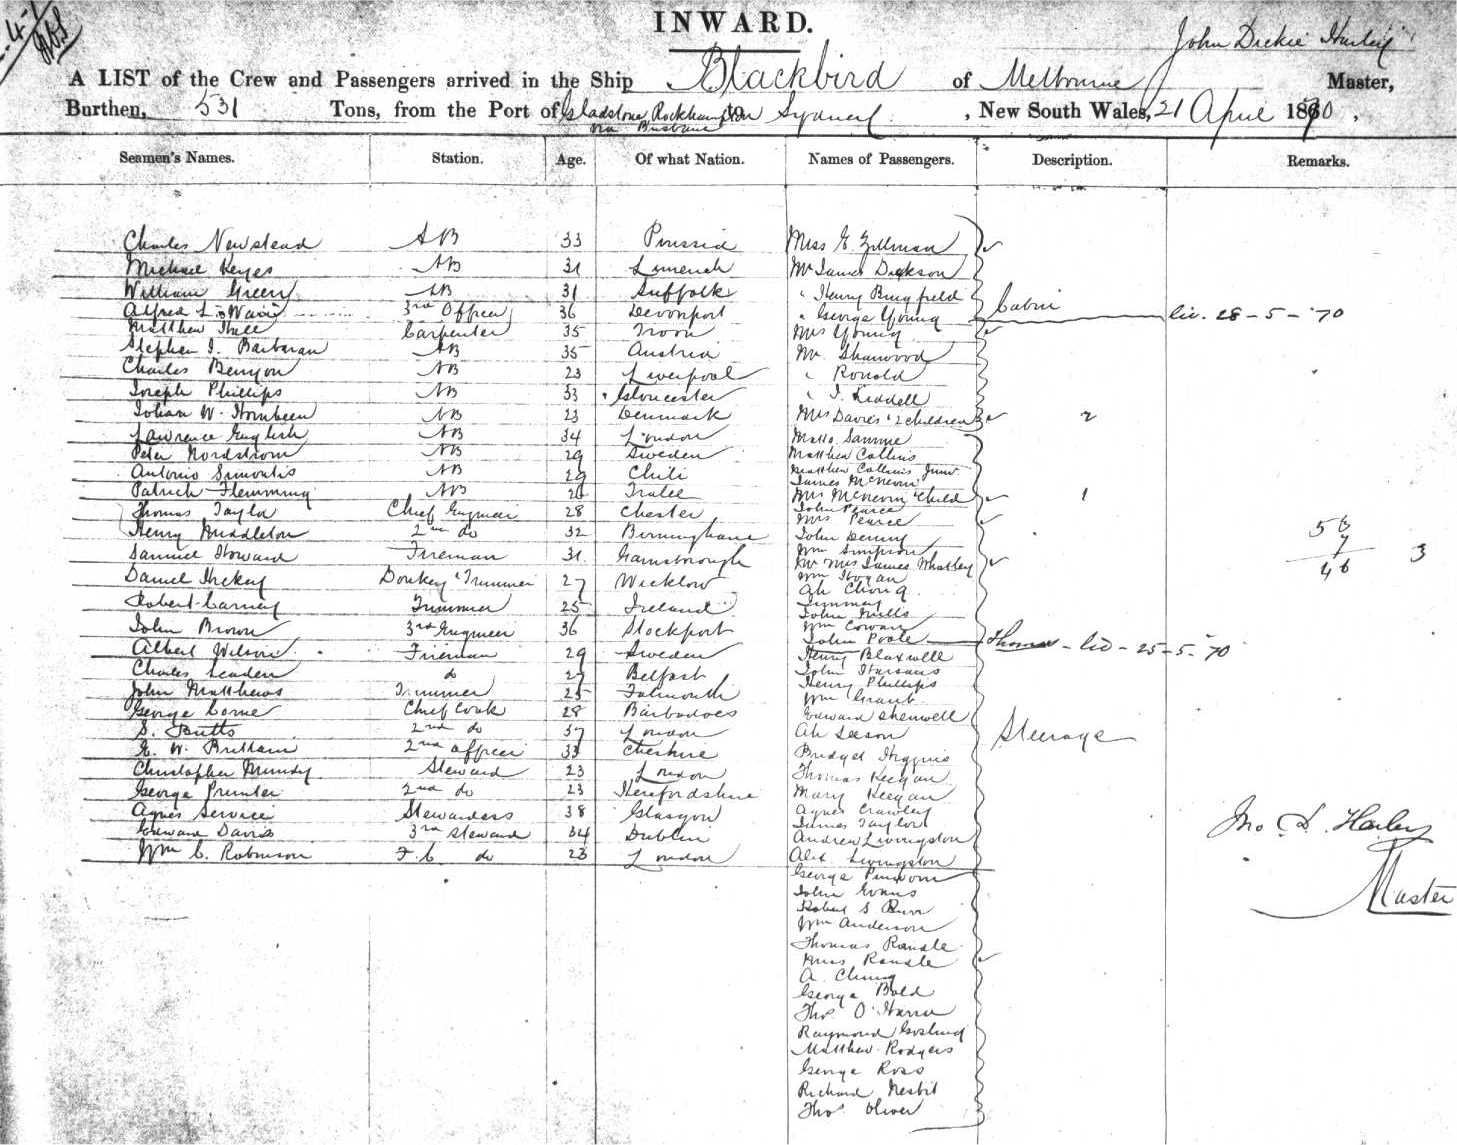 INWARD.
John Dickie Harley
A LIST of the Crew and Passengers arrived in the Ship Blackbird of Melbourne Master,
Burthen, 531 Tons, from the Port of Gladstone Rockhampton to Sydney, New South Wales, 21 April 1870.
via Brisbane
Seamen's Names. Station. Age. Of what Nation. Names of Passengers. Description. Remarks.
Charles Newstead AB 33 Prussia Miss E. Zillman
Michael Keyes AB 31 Limerick Mr James Dickson
William Green AB 31 Suffolk " Henry
Alfred 3rd Officer 36 Devonport " George Young Cabin 28-5-70
Matthew Carpenter 35 Troon Mrs Young
Stephen I. Barbaran AB 35 Austria Mr Sharwood
Charles Benyon AB 23 Liverpool " Ronald
Joseph Phillips AB 33 Gloucester " J. Liddell
Johan W. AB 23 Denmark Mrs Davies & 2 children 2
Lawrence English AB 34 London
Peter Nordstrom AB 29 Sweden Matthew Collins
Antonio AB 29 Chili Matthew Collins Junr
James McNevin
Patrick Flemming AB Tralee Mrs McNevin & Child 1
Thomas Taylor Chief Engineer 28 Chester John Pearce
Mrs Pearce
Henry Middleton 2nd do 32 Birmingham John Denny
Wm Simpson
Samuel Howard Fireman 31 Gainsborough Mr Mrs James Whatley
56
7
46 3
Daniel Hickey Donkey & Trimmer 27 Wicklow Wm Hogan
Ah Chong
Robert Carney Trimmer 25 Ireland Jimmy
John Mills
John Brown 3rd Engineer 36 Stockport Wm Cowan
John Poole Thomas - 25-5-70
Albert Wilson Fireman 29 Sweden Henry Blaxwell
Charles Leaden do 27 Belfast John
John Matthews Trimmer 25 Falmouth Henry Phillips
Wm Grant
George Corne Chief Cook 28 Barbadoes Edward Shenwell
S. Butts 2nd do 37 London Ah Leeson Steerage
E. W. Brittain 2nd officer 33 Cheshire Bridget Higgins
Christopher Mundy Steward 23 London Thomas Keegan
George Prunter 2nd do 23 Herefordshire Mary Keegan
Agnes Service Stewardess 38 Glasgow Agnes Crawley
James Taylor
Edward Davis 3rd Steward 34 Dublin Andrew Livingston
Wm C. Robinson F. C do 23 London Alex Livingston
Jno D. Harley
Master
George
John Evans
Robert S
Wm Anderson
Thomas Randle
Mrs Randle
A. Chung
George Bold
Thos O'Harra
Raymond
Matthew Rodgers
George Ross
Richard Nesbit
Thos Oliver